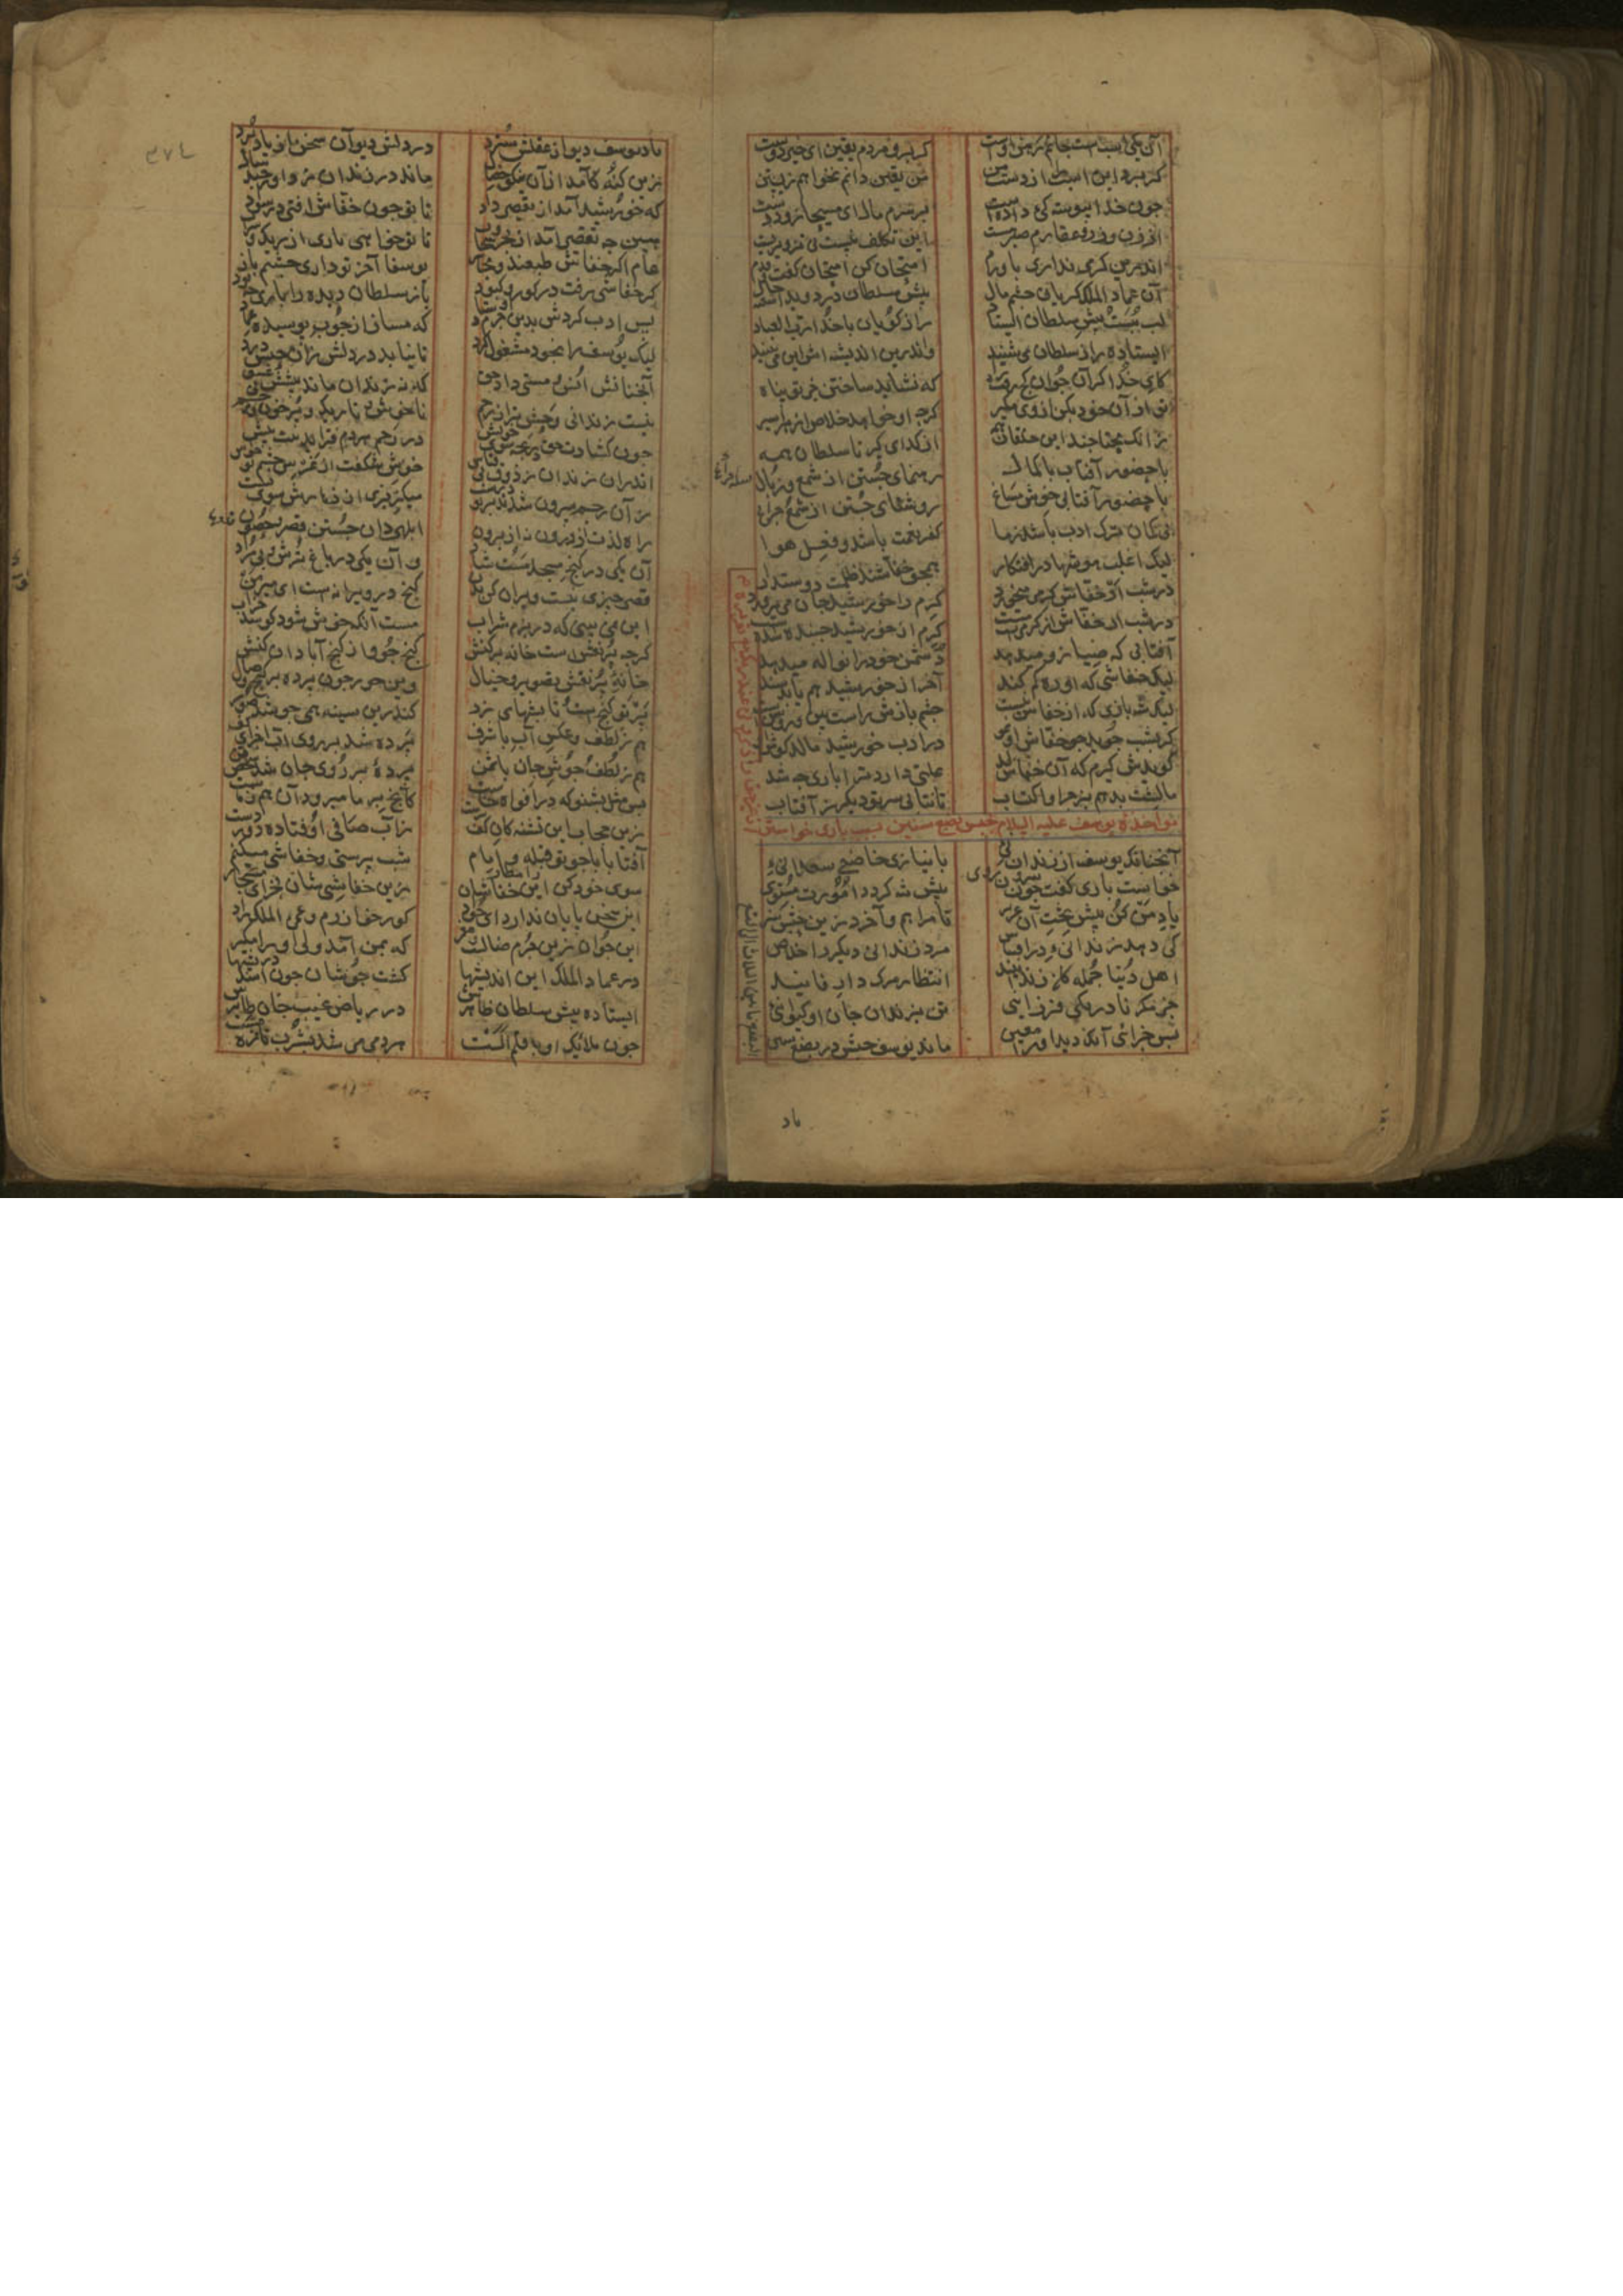 آن یکی اسبست جانم رهن اوست کر برد مردم یقین ای خیر دوست
کر برد این اسب را از دست من من یقین دانم نخواهم زیستن
چون خدا پیوستکی داده است بر سرم مال ای مسیحا زود دست
از زن و زر و عقارم صبر هست این تکلف نیست نی تزویریست
اندرین کر می نداری باورم امتحان کن امتحان کفت و قدم
آن عماد الملک کریان چشم مال پیش سلطان در دوید آشفته حال
لب ببست پیش سلطان ایستاد راز کویان با خدا رب العباد
ایستاده راز سلطان می شنید واندرون اندیشه اش این می تنید
کای خدا کر آن جوان کج رفت راه که نشاید ساختن جز تو پناه
تو از آن خود بکن از وی مکیر کرچه او خواهد خلاص از هر اسیر
زانک محتاجند این خلقان همه از کدای کیر تا سلطان همه
با حضور آفتاب با کمال رهنمای جستن از شمع و ذبال
با حضور آفتابی خوش مساغ روشنای جستن از شمع و چراغ
بی کمان ترک ادب باشد ز ما کفر نعمت باشد و فعل هوا
لیک اغلب هوشها در افتکار همچو خفاشند ظلمت دوستدار
در شب ار خفاش کرمی میخورد کرم را خورشید جان می پرورد
در شب ار خفاش از کرمیست مست کرم از خورشید جنبنده شدست
آفتابی که ضیا زو میزهد دشمن خود را نواله میدهد
لیک خفاشی که او ره کم کند آخر از خورشید هم یابد سند
لیک شه بازی که از خفاش نیست چشم بازش راست بین و روشنیست
کر بشب جوید چو خفاش او نمو در ادب خورشید مالد کوش او
کویدش کیرم که آن خفاش لد علتی دارد ترا باری چه شد
مالشت بدهم بزجر و اکتئاب تا نتابی سر تو دیکر ز آفتاب
مواخذه یوسف علیه السلام بحبس بضع سنین بسبب یاری خواستن
آنچنانک یوسف از زندانیی با نیازی خاضعی سعدانیی
خواست یاری کفت چون بیرون روی پیش شه کردد امورت مستوی
یاد من کن پیش تخت آن عزیز تا مرا هم واخرد زین حبس نیز
کی دهد زندانی در اقتناص مرد زندانی دیکر را خلاص
اهل دنیا جمله کان زندانیند انتظار مرک دار فانیند
جز مکر نادر یکی فردانیی تن بزندان جان او کیوانیی
پس جزای آنک دید او را معین ماند یوسف حبس در بضع سنین
یاد
٣٧٤
یاد یوسف دیو از عقلش سترد در دلش دیو آن سخن از یاد برد
زین کنه کآمد از آن نیکو خصال ماند در زندان ز داور چند سال
که چه تقصیر آمد از خورشید داد تا تو چون خفاش افتی در سواد
هین چه تقصیر آمد از بحر و سحاب تا تو خواهی یاری از ریک و سراب
عام اکر خفاش طبعند و مجاز یوسفا آخر تو داری چشم باز
کر خفاشی رفت در کور و کبود باز سلطان دیده را باری چه بود
پس ادب کردش بدین جرم اوستاد که مساز از چوب پوسیده عماد
لیک یوسف را بخود مشغول کرد تا نیاید در دلش زان حبس درد
آنچنانش انس و مستی داد حق که نه زندان ماند پیشش نی غسق
نیست زندانی وحش تر از رحم ناخوش و تاریک و پر خون و وخم
چون کشادت حق دریچه سوی خویش در رحم هر دم فزاید تنت بیش
اندران زندان ز ذوق بی قیاس خوش شکفت از غرس جسم تو حواس
زان رحم بیرون شدن بر تو درشت میکریزی از زهارش سوی پشت
راه لذت از درون دان از برون ابلهی دان جستن قصر و حصون
آن یکی در کنج مسجد مست شاد و آن یکی در باغ ترش و بی مراد
قصر چیزی نیست ویران کن بدن کنج در ویرانه است ای میر من
این نمی بینی که در بزم شراب مست آنکه خوش شود کو شد خراب
کرچه پر نقش است خانه برکنش کنج جو و از کنج آبادان کنش
خانه پر نقش تصویر و خیال وین صور چون پرده بر کنج وصال
پرتو کنج است تابشهای زر کاندرین سینه همی جوشد صور
هم ز لطف و عکس آب با شرف پرده شد بر روی آب اجزای کف
هم ز لطف و جوش جان با ثمن پرده بر روی جان شد شخص تن
پس مثل بشنو که در افواه خاست کانچ بر ما میرود آن هم ز ماست
زین حجاب این تشنکان کف پرست زآب صافی اوفتاده دور دست
آفتابا با چو تو قبله و امام شب پرستی و خفاشی میکنیم
سوی خود کن این خفاشان را مطار زین خفاشی شان بخر ای مستجار
این جوان زین جرم ضالست و مغیر که بمن آمد ولی او را مکیر
در عماد الملک این اندیشها کشت جوشان چون اسد در بیشها
ایستاده پیش سلطان ظاهرش در ریاض غیب جان طایرش
چون ملائک او باقلیم الست هر دمی می شد بشرب تازه مست